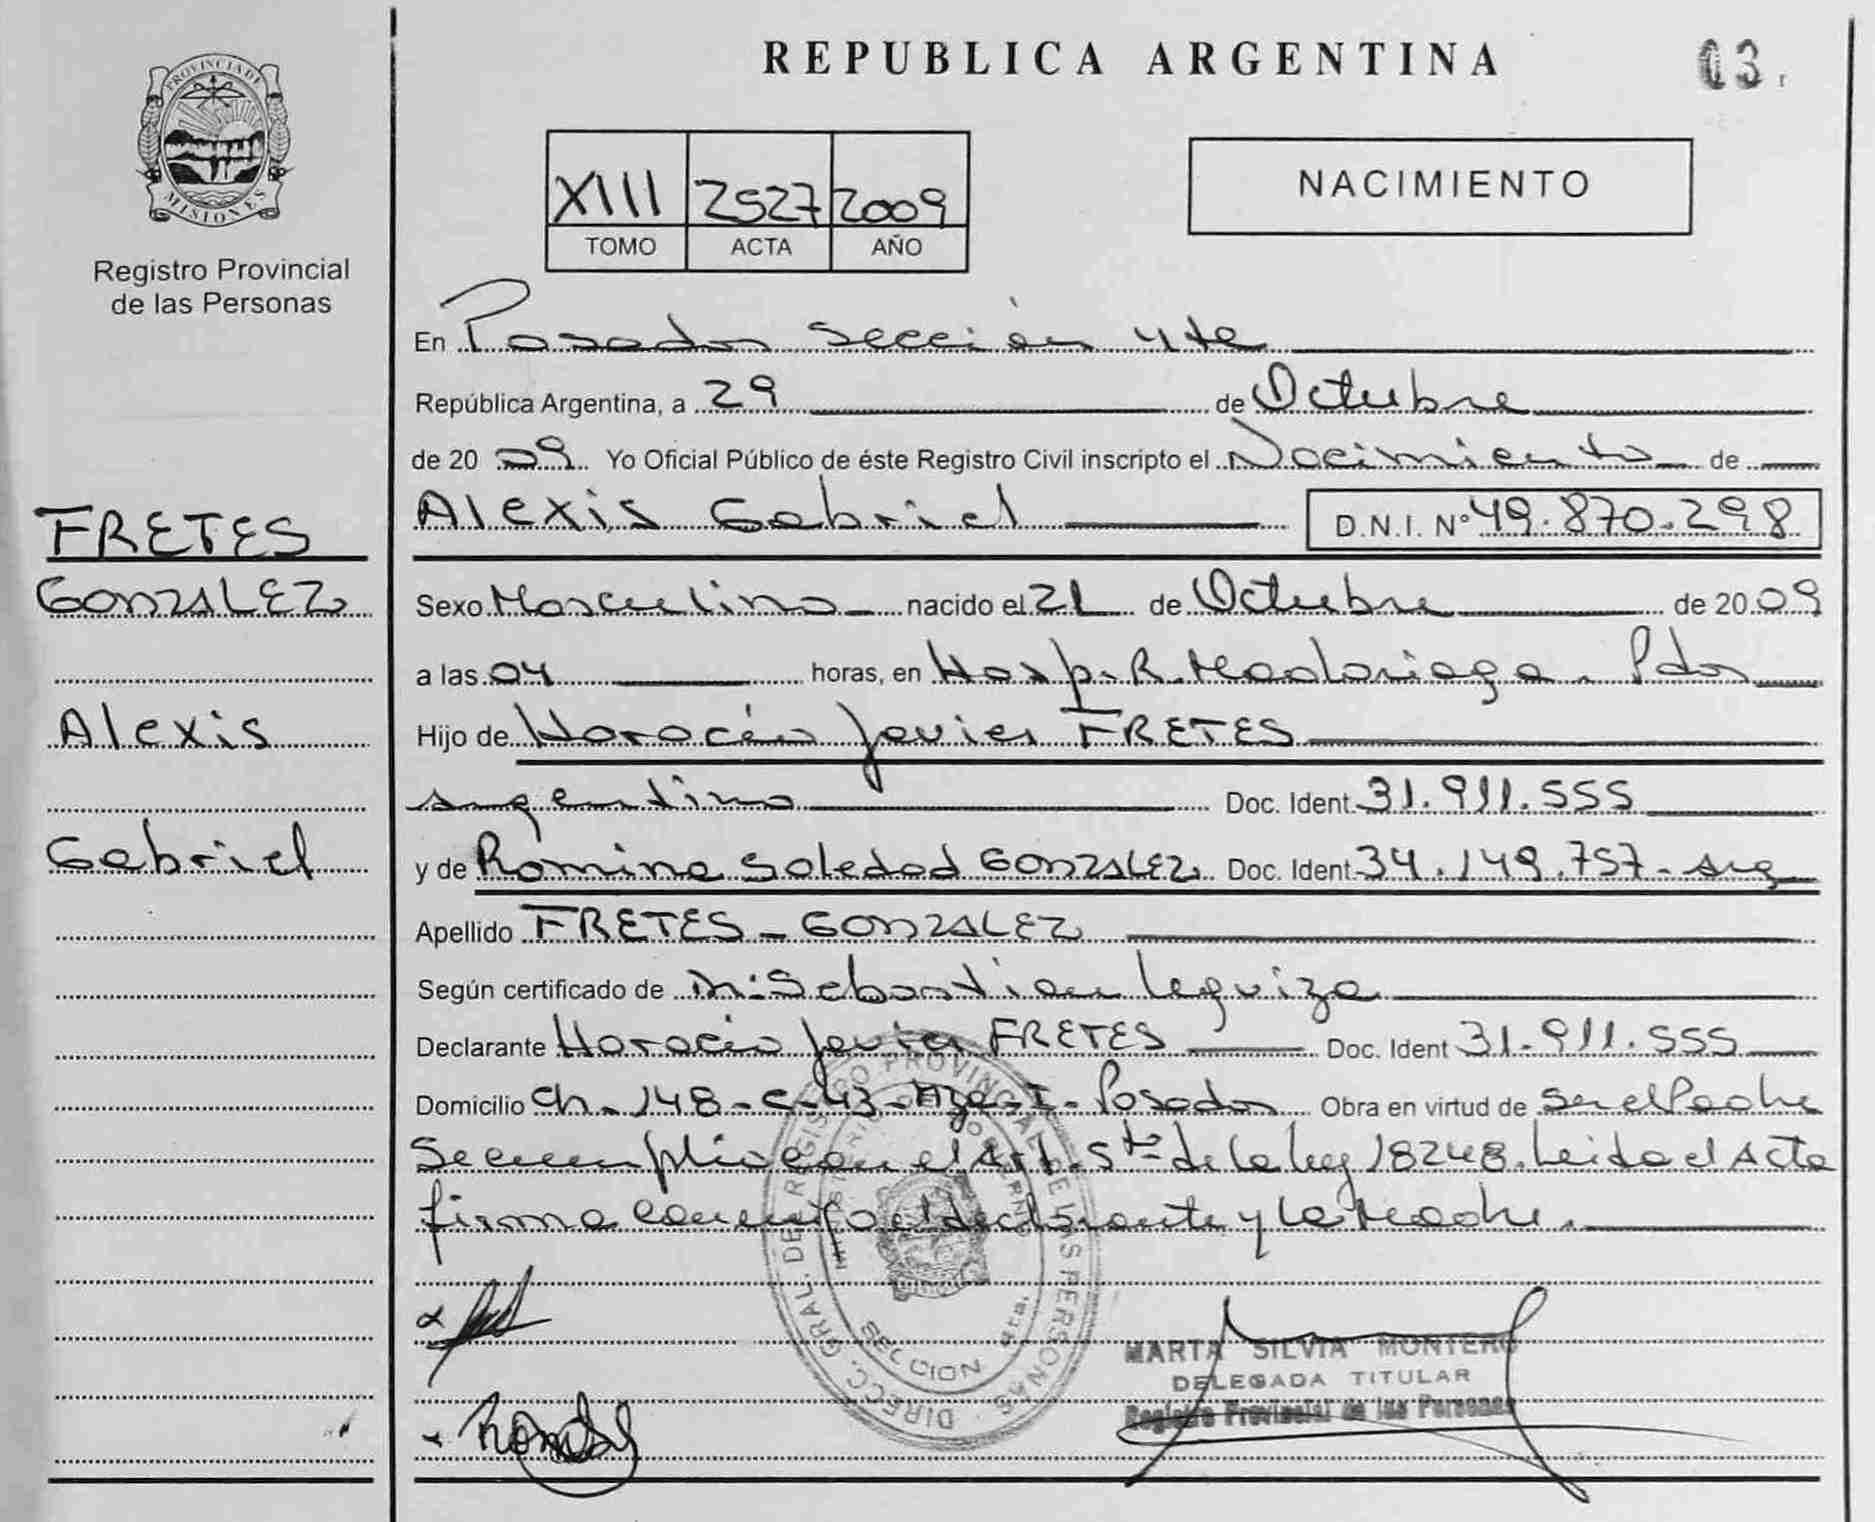 REPUBLICA ARGENTINA
03
PROVINCIA DE MISIONES
Registro Provincial
de las Personas
XIII 2527 2009
TOMO ACTA AÑO
NACIMIENTO
En Posadas Sección 4ta
República Argentina, a 29 de Octubre
de 20 09 Yo Oficial Público de éste Registro Civil inscripto el Nacimiento de
Alexis Gabriel D.N.I. Nº 49.870.298
FRETES
GONZALEZ
Alexis
Gabriel
Sexo Masculino nacido el 21 de Octubre de 20 09
a las 04 horas, en Hosp. R. Madariaga. Pdas
Hijo de Horacio Javier FRETES
argentino Doc. Ident 31.911.555
y de Romina Soledad GONZALEZ Doc. Ident 34.149.757- arg
Apellido FRETES - GONZALEZ
Según certificado de Sebastian Leguiza
Declarante Horacio Javier FRETES Doc. Ident 31.911.555
Domicilio Ch - 148 - C-43 - Posadas Obra en virtud de Ser el Padre
Se cumplio con el Art. 5to de la ley 18248. Leida el Acta
firma conmigo el declarante y la Madre.
DIRECC. GRAL DE REGISTRO PROVINCIAL DE LAS PERSONAS
MINISTERIO DE GOBIERNO
SECCION 4ta.
MARTA SILVIA MONTERO
DELEGADA TITULAR
Registro Provincial de las Personas